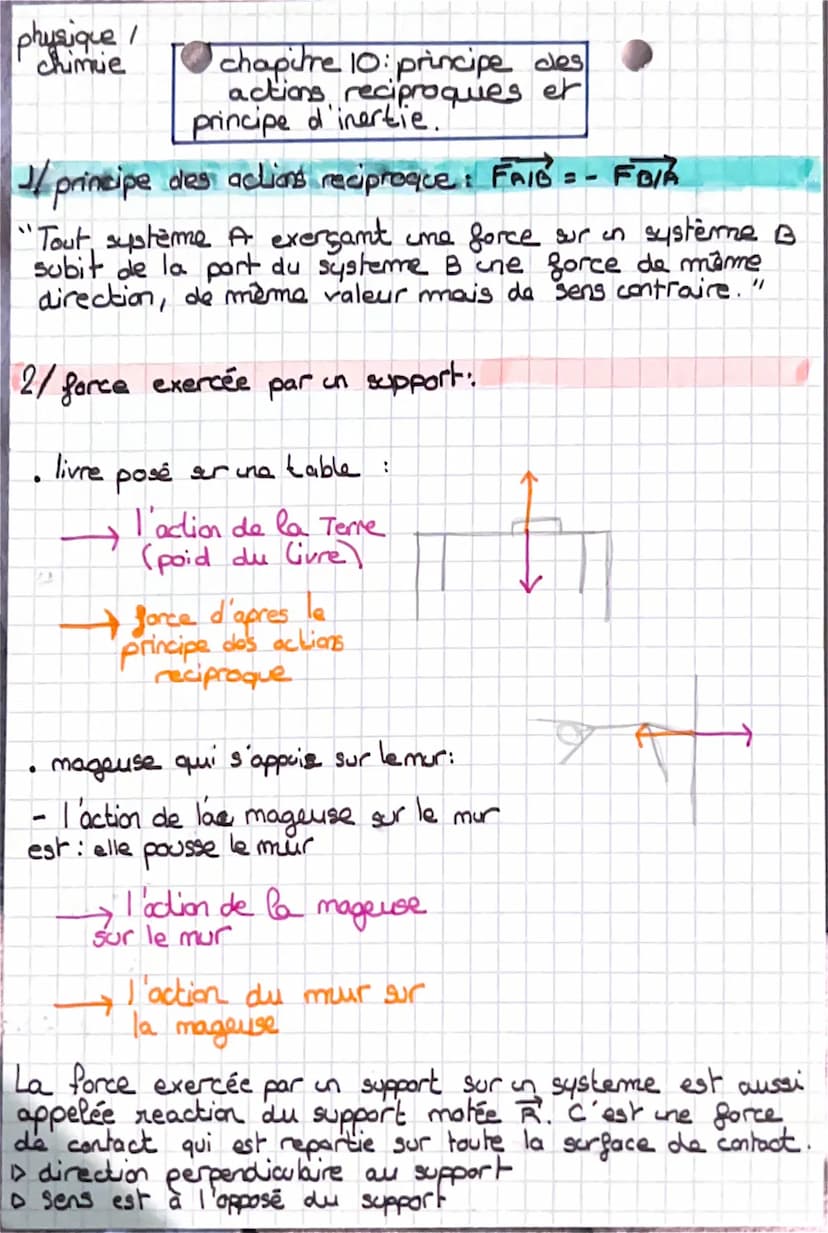 physique /
chimie
chapitre 10: principe des
actions reciproques et
principe d'inertie.
1/ principe des actions reciproque : FA/B = - FB/A
"Tout système A exerçant une force sur un système B
subit de la part du systeme B une force de même
direction, de même valeur mais de sens contraire."
2/ force exercée par un support:
. livre posé sur une table :
→ l'action de la Terre
(poid du livre)
→ force d'apres le
principe des actions
reciproque
. mageuse qui s'appuie sur le mur:
- l'action de la mageuse sur le mur
est : elle pousse le mur
→ l'action de la mageuse
sur le mur
→ l'action du mur sur
la mageuse
La force exercée par un support sur un systeme est aussi
appelée reaction du support notée R. C'est une force
de contact qui est repartie sur toute la surface de contact.
▷ direction perpendiculaire au support
▷ sens est à l'opposé du support